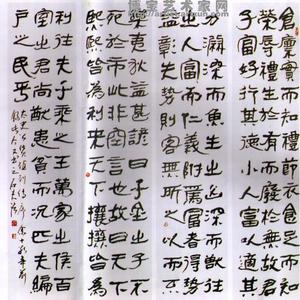 博宝艺术家网
倉廩實而知禮節衣食足而知
榮辱禮生於有而廢於無故君
子富好行其德小人富以適其
力淵深而魚生之山深而獸往
之人富而仁義附焉富者得勢
益彰失勢則客無所之以而不
樂夷狄益甚諺曰千金之子不
死於市此非空言也故曰天下
熙熙皆為利來天下攘攘皆為
利往夫千乘之王萬家之侯百
室之君尚猶患貧而況匹夫編
戶之民乎